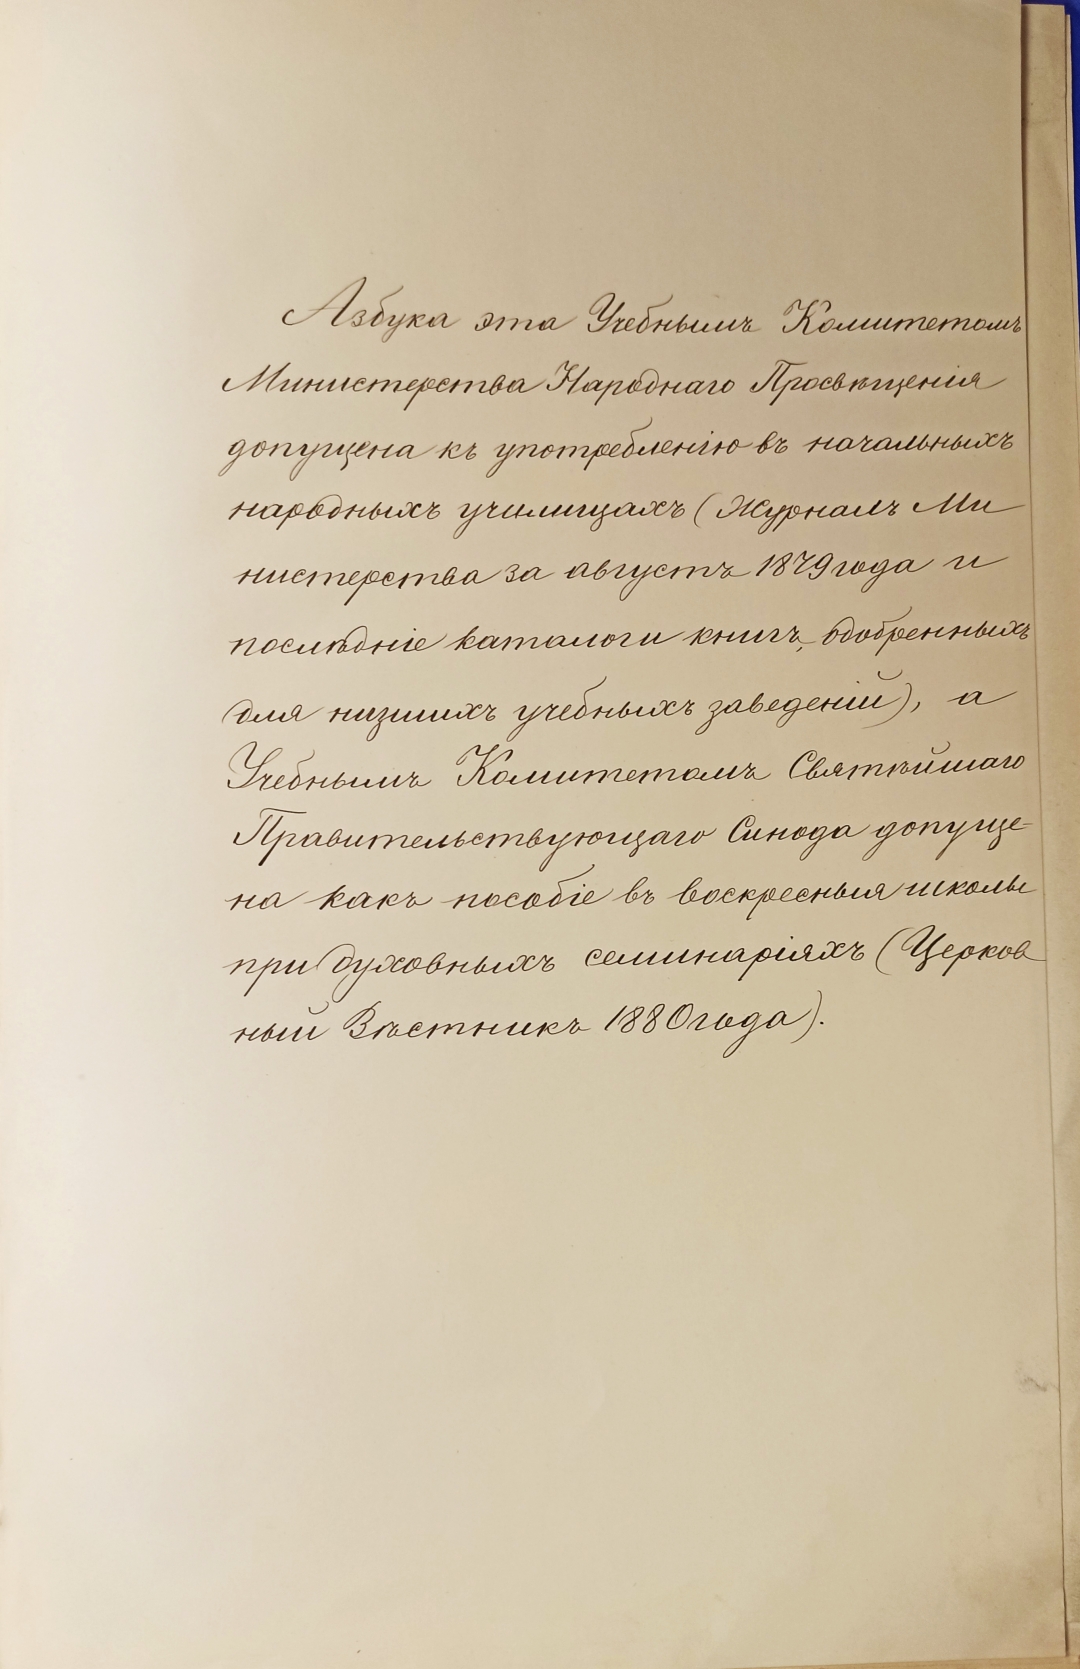 Азбука эта Учебнымъ Комитетомъ
Министерства Народнаго Просвѣщенія
допущена къ употребленію въ начальныхъ
народныхъ училищахъ (Журналъ Ми
нистерства за августъ 1879 года и
послѣдніе каталоги книгъ, одобренныхъ
для низшихъ учебныхъ заведеній), а
Учебнымъ Комитетомъ Святѣйшаго
Правительствующаго Синода допуще-
на какъ пособіе въ воскресныя школы
при духовныхъ семинаріяхъ (Церков
ный Вѣстникъ 1880 года).